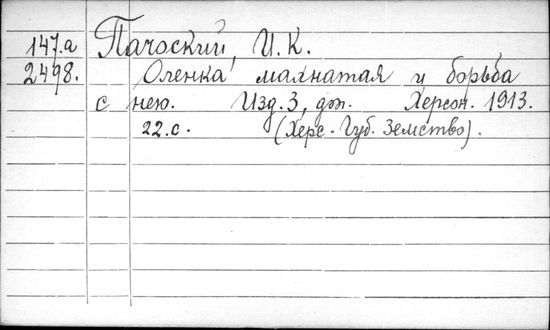 147.а Пачоский, И.К.
2498. Оленка махнатая и борьба
с нею. Изд. 3, дп. Херсон. 1913.
22.с. (Херс. Губ. Земство).